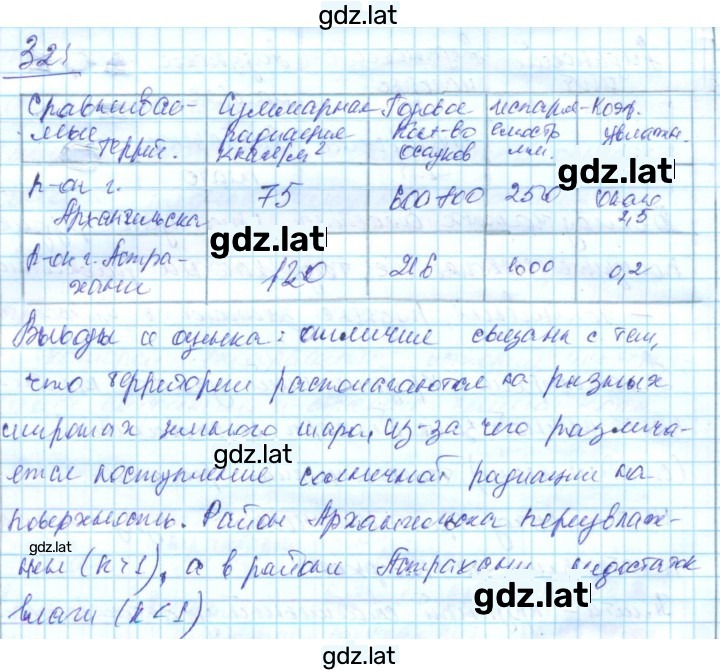 gdz.lat
321
Сравнивае- Суммарная Годовое испаря- Коэф.
мые террит. радиация кол-во емость увлажн.
ккал/м² осадков мм.
р-он г. 75 600-700 250 около
Архангельска 2,5
gdz.lat
gdz.lat
р-он г. Астра- 120 216 1000 0,2
хани
gdz.lat
Выводы и оценка: отличия связаны с тем,
что территории располагаются на разных
широтах земного шара, из-за чего различа-
gdz.lat
ется поступление солнечной радиации на
поверхность. Район Архангельска переувлаж-
gdz.lat
нен (k>1), а в районе Астрахани недостаток
gdz.lat
влаги (k<1)
gdz.lat